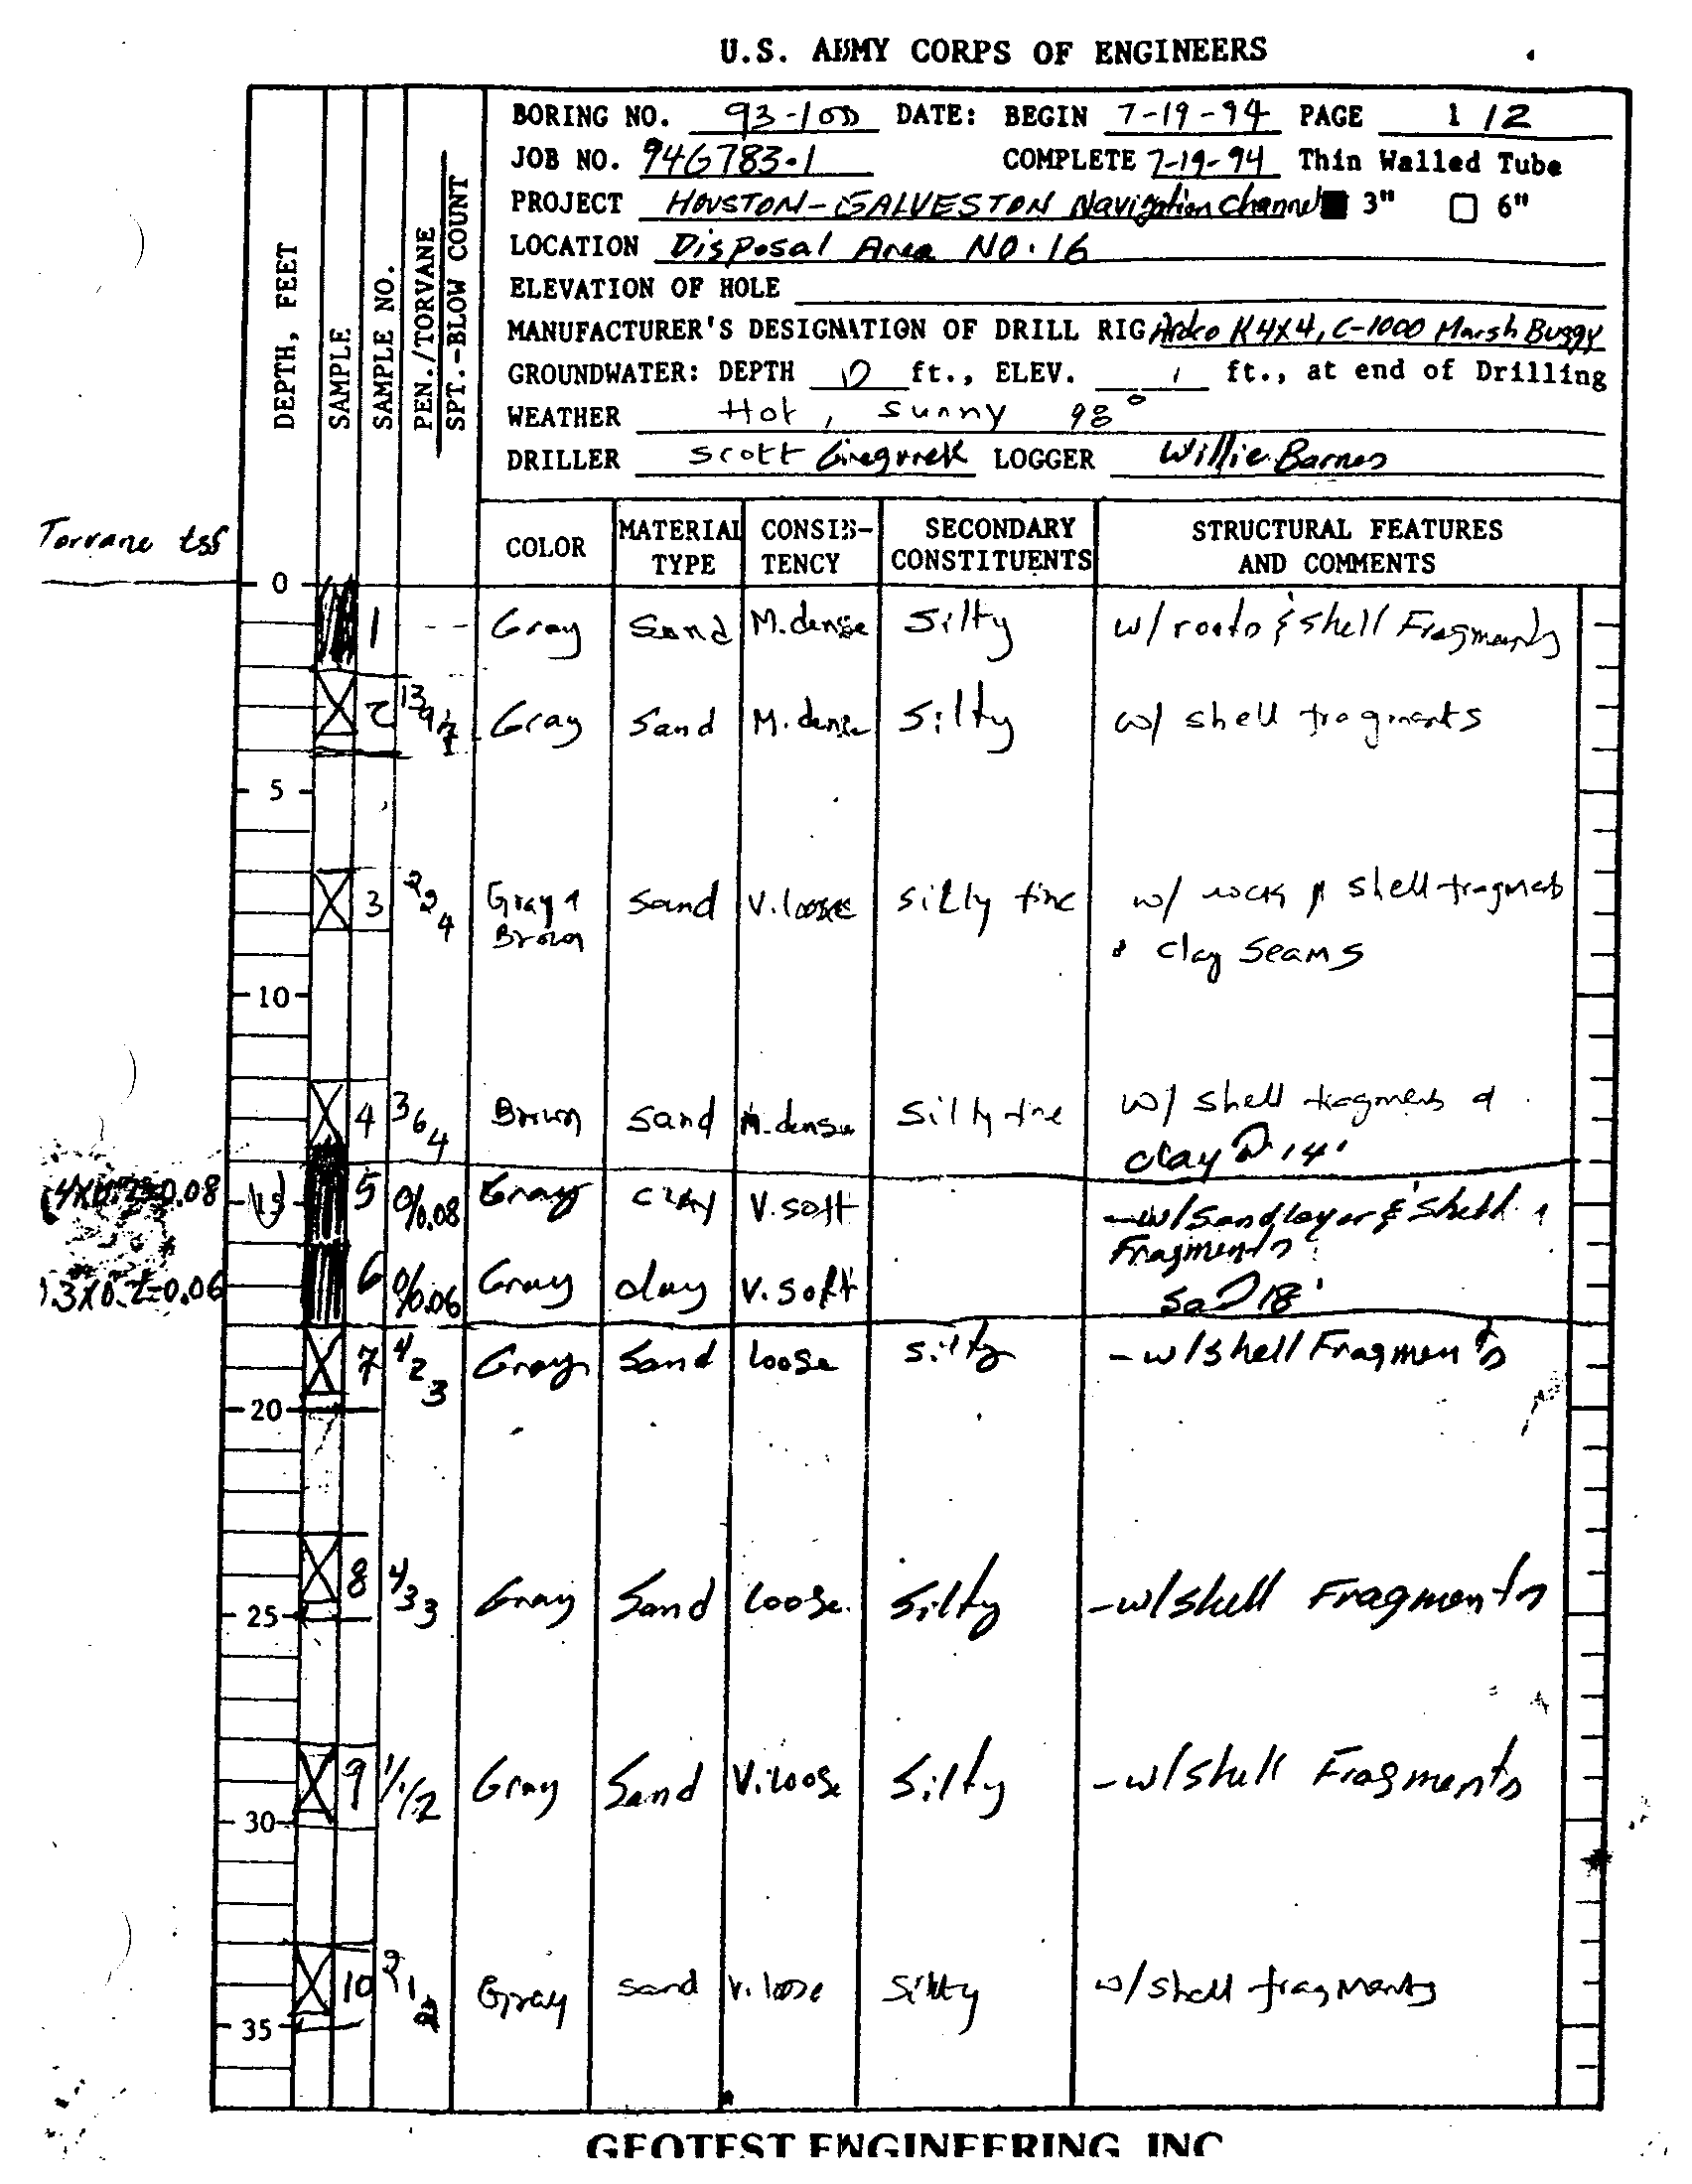 U.S. ARMY CORPS OF ENGINEERS
BORING NO. 93-100 DATE: BEGIN 7-19-94 PAGE 1 / 2
JOB NO. 94G783.1 COMPLETE 7-19-94 Thin Walled Tube
PROJECT HOUSTON-GALVESTON Navigation Channel ■ 3" □ 6"
LOCATION Disposal Area NO. 16
ELEVATION OF HOLE
MANUFACTURER'S DESIGNATION OF DRILL RIG Ardco K4X4, C-1000 Marsh Buggy
GROUNDWATER: DEPTH 0 ft., ELEV. ft., at end of Drilling
WEATHER Hot, Sunny 98°
DRILLER Scott LOGGER Willie Barnes
DEPTH, FEET
SAMPLE
SAMPLE NO.
PEN./TORVANE
SPT.-BLOW COUNT
Torvane tsf
COLOR MATERIAL TYPE CONSIS-TENCY SECONDARY CONSTITUENTS STRUCTURAL FEATURES AND COMMENTS
0
1 -- Gray Sand M.dense Silty w/ roots & shell Fragments
2 13 9 7 Gray Sand M.dense Silty w/ shell fragments
5
3 2 2 4 Gray & Brown Sand V.loose silty fine w/ rock & shell fragments
& clay seams
10
4 3 6 4 Brown Sand M.dense Silty fine w/ shell fragments &
clay @ 14'
15 5 0/0.08 Gray clay V.soft -w/Sand layer & shell
Fragments
.3X0.2=0.06 6 0/0.06 Gray clay V.soft
Sa @ 18'
7 4 2 3 Gray Sand loose silty -w/shell Fragments
20
8 4 3 3 Gray Sand loose. Silty -w/shell Fragments
25
9 1/1/2 Gray Sand V.loose Silty -w/shell Fragments
30
10 2 1 2 Gray sand V.loose Silty w/shell fragments
35
GEOTEST ENGINEERING, INC